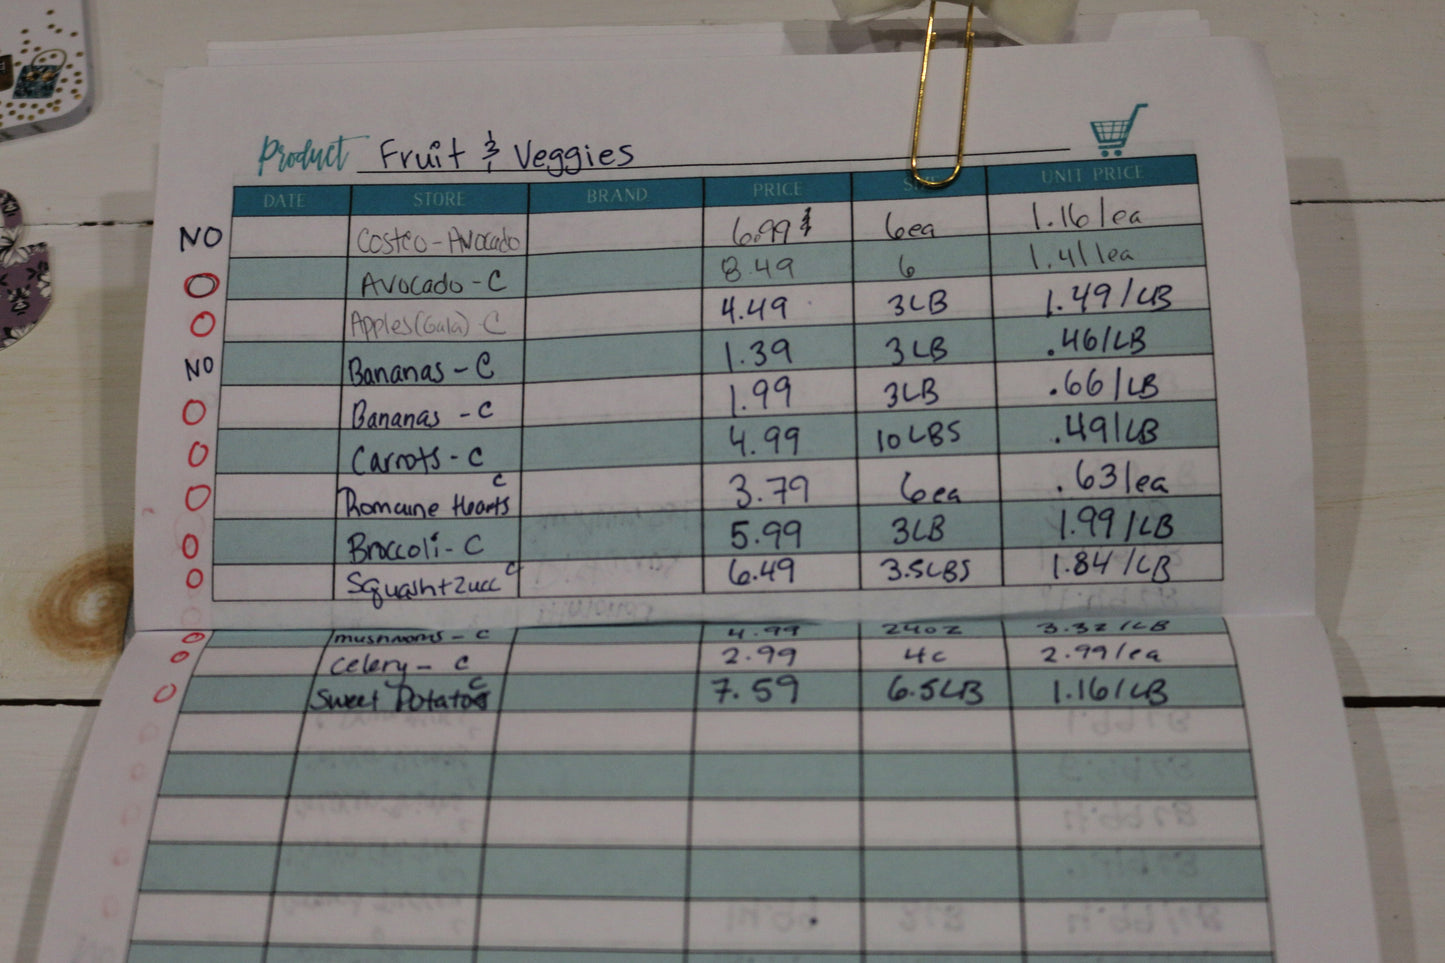 Product Fruit & Veggies
DATE STORE BRAND PRICE SIZE UNIT PRICE
NO Costco-Avocado 6.99 6ea 1.16/ea
O Avocado-C 8.49 6 1.41/ea
O Apples(Gala)-C 4.49 3LB 1.49/LB
NO Bananas-C 1.39 3LB .46/LB
O Bananas-C 1.99 3LB .66/LB
O Carrots-C 4.99 10LBS .49/LB
O Romaine Hearts C 3.79 6ea .63/ea
O Broccoli-C 5.99 3LB 1.99/LB
O Squash+Zucc C 6.49 3.5LBS 1.84/LB
O mushrooms-C 4.99 24oz 3.32/LB
O Celery-C 2.99 4c 2.99/ea
O Sweet Potatoes C 7.59 6.5LB 1.16/LB